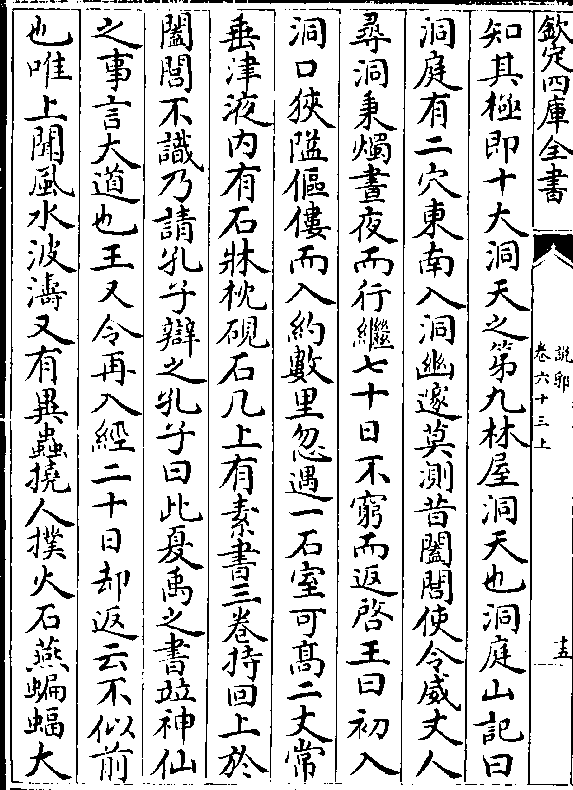 欽定四庫全書
說郛
卷六十三上
十五
知其極即十大洞天之第九林屋洞天也洞庭山記曰
洞庭有二穴東南入洞幽邃莫測昔闔閭使令威丈人
尋洞秉燭晝夜而行繼七十日不窮而返啓王曰初入
洞口狹隘傴僂而入約數里忽遇一石室可髙二丈常
垂津液内有石牀枕硯石几上有素書三卷持回上於
闔閭不識乃請孔子辯之孔子曰此夏禹之書竝神仙
之事言大道也王又令再入經二十日却返云不似前
也唯上聞風水波濤又有異蟲撓人撲火石燕蝙蝠大